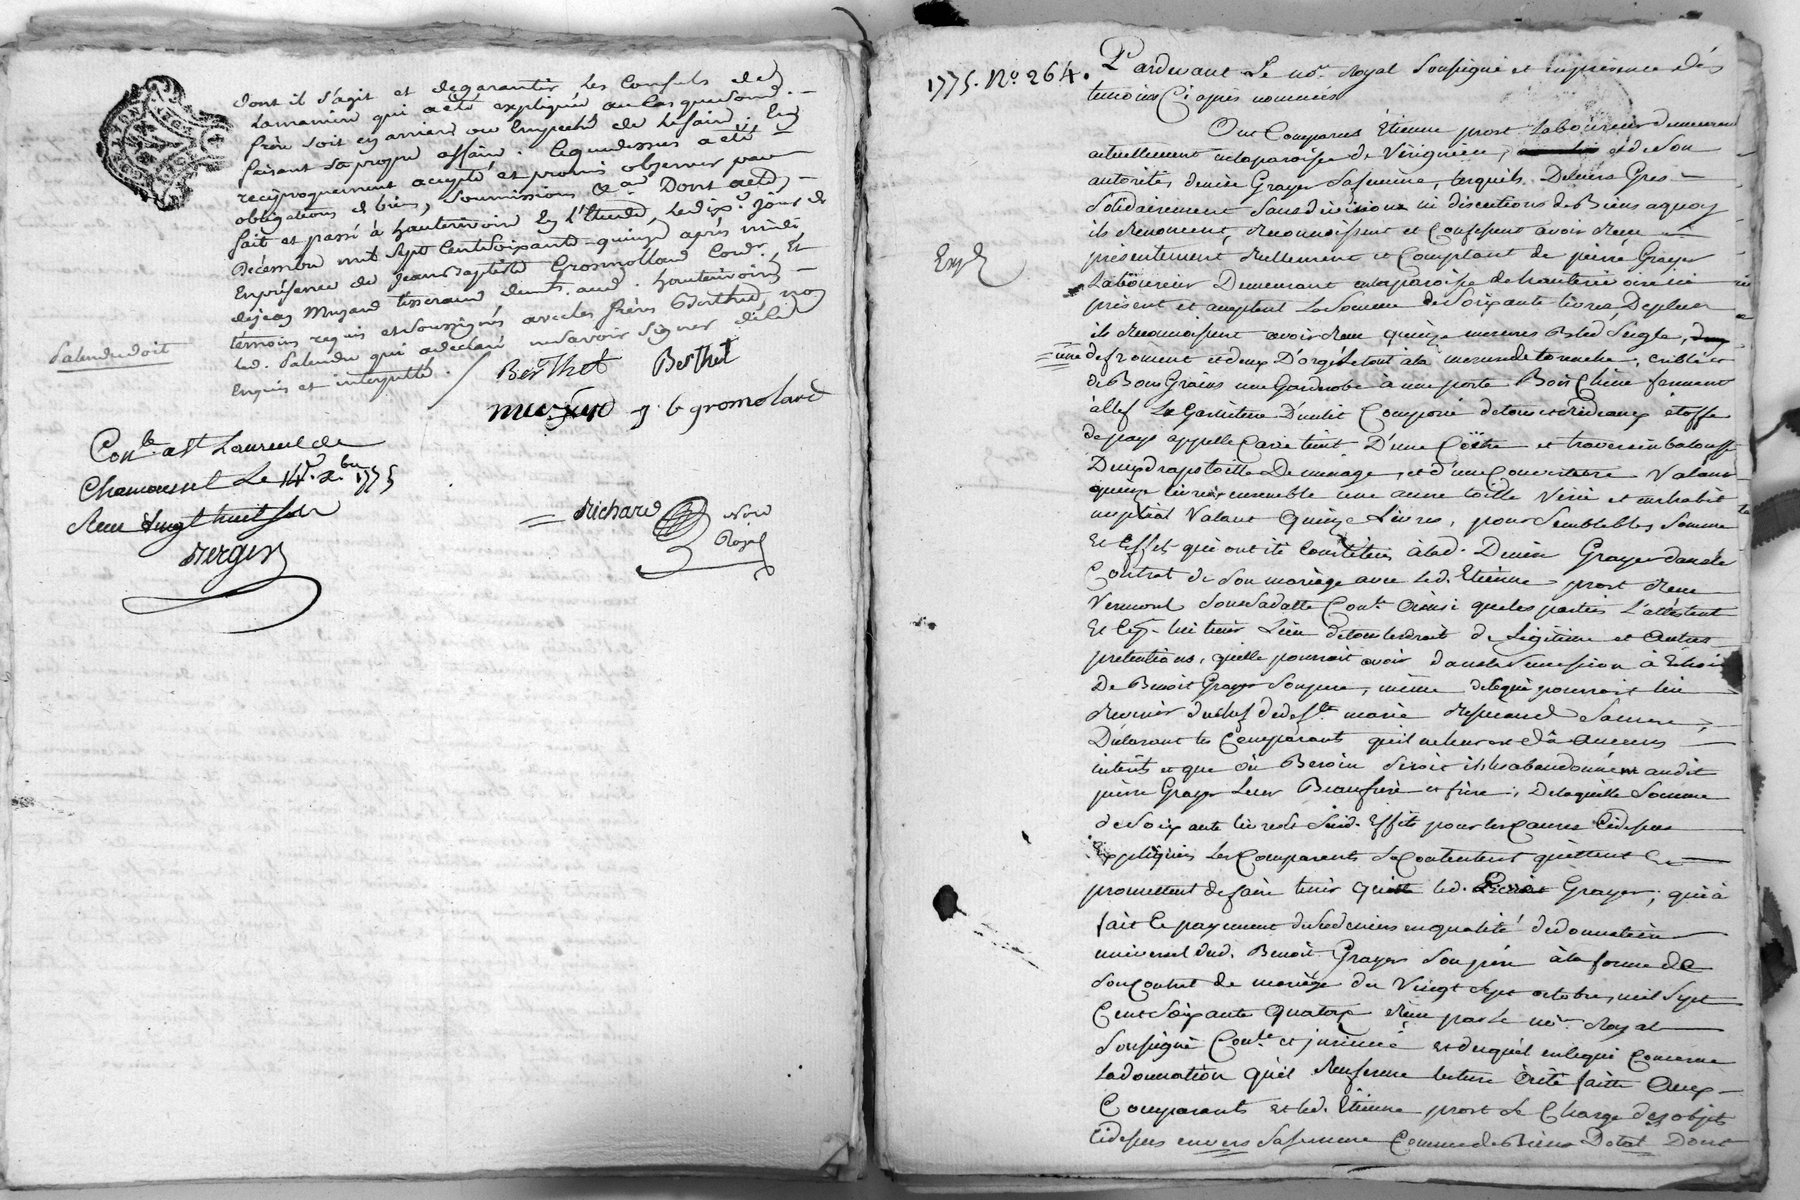 dont il s'agit et degarantir les Conseils de
Lamaniere qui a été expliquée au Cas que Son d.
frère Soit en arriere ou Empeché de Lefaire. En
faisant Sa propre affaire. Cequedessus a été
reciproquement accepté et promis observer par
obligations de biens, Soumissions &a. Dont acte,
fait et passé à hauterivoire En L'Etude, Le dix.e Jour de
Décembre mil Sept Cent Soixante-quinze après midi
En présence de Jean Baptiste Grosmollard Cord.r Et
de Jean Muzard tisserand dem.ts aud. hauterivoire
temoins requis et Soussignés avec les frères Berthet, non
led. Palandu qui a declaré ne Savoir Signer de ce
Enquis et interpellé.
Palandu doit
Berthet Berthet
muzard j b gromolard
Con.lé a S.t Laurent de
Chamousset Le 14.e x.bre 1775
Reçu vingt huit Sols
Richard Not.re
Royal
1775. No. 264. Pardevant Le no.re Royal Soussigné et en presence des
temoins Ci après nommés
Ont Comparus Etienne prost Laboureur demeurant
actuellement en la paroisse de Virigneu, et de Son
autorité denise Grayer Sa femme, lesquels De leurs Gres
Solidairement Sans division ni discutions de Biens a quoy
ils Renoncent, Reconnoissent et Confessent avoir Reçu
Exp.é
présentement Réellement et Comptant de pierre Grayer
Laboureur Demeurant en la paroisse de hauterivoire ici
présent et acceptant La Somme de Soixante livres, De plus
ils Reconnoissent avoir Reçu quinze mesures Bled Seigle,
une de froment et deux D'orge Le tout à la mesure de , criblé et
de Bons Grains une Garderobe à une porte Bois Chêne fermant
à Clef La Garniture D'un lit Composé de tours et Rideaux étoffe
de pays appellé Cadis teint, D'une Coëtre et traversin balouffe
Deux draps toille De menage, et d'une Couverture Valant
quinze livres ensemble une aune toille Venise et un habit
nuptial Valant Quinze Livres, pour Semblables Somme
Et Effets qui ont été Constitués à lad. Denise Grayer dans le
Contrat de Son mariage avec led. Etienne prost Reçu
Vermorel Sous Sa datte Con.lé ainsi que les parties L'attestent
Et Ce, pour lui tenir Lieu de tous les droits de Légitime et autres
prétentions, qu'elle pourroit avoir dans la Succession à Echoir
De Benoit Grayer Son pere, même de ce qui pourroit lui
Revenir du chef de deff.te marie Sa mere,
Déclarant les Comparants qu'il ne leur est dû aucuns
intérêts et que où Besoin Seroit ils les abandonnent audit
pierre Grayer Leur Beaufrère et frère; De laquelle Somme
de Soixante livres et Susd. Effets pour les Causes Cidessus
Expliquées Les Comparants Se Contentent quittent Et
promettent de faire tenir quitte led. Pierre Grayer, qui à
fait Ce payement de Ses deniers en qualité de donnataire
universel dud. Benoit Grayer Son père à la forme de
Son Contrat de mariage du Vingt Sept octobre, mil Sept
Cent Soixante Quatorze Reçu par Le no.re Royal
Soussigné Con.lé et insinué Et duquel en ce qui Concerne
La donnation qu'il Renferme lecture à été faitte Aux
Comparants Et led. Etienne prost Se Charge des objets
Cidessus envers Sa femme Comme de Biens Dotal Dont